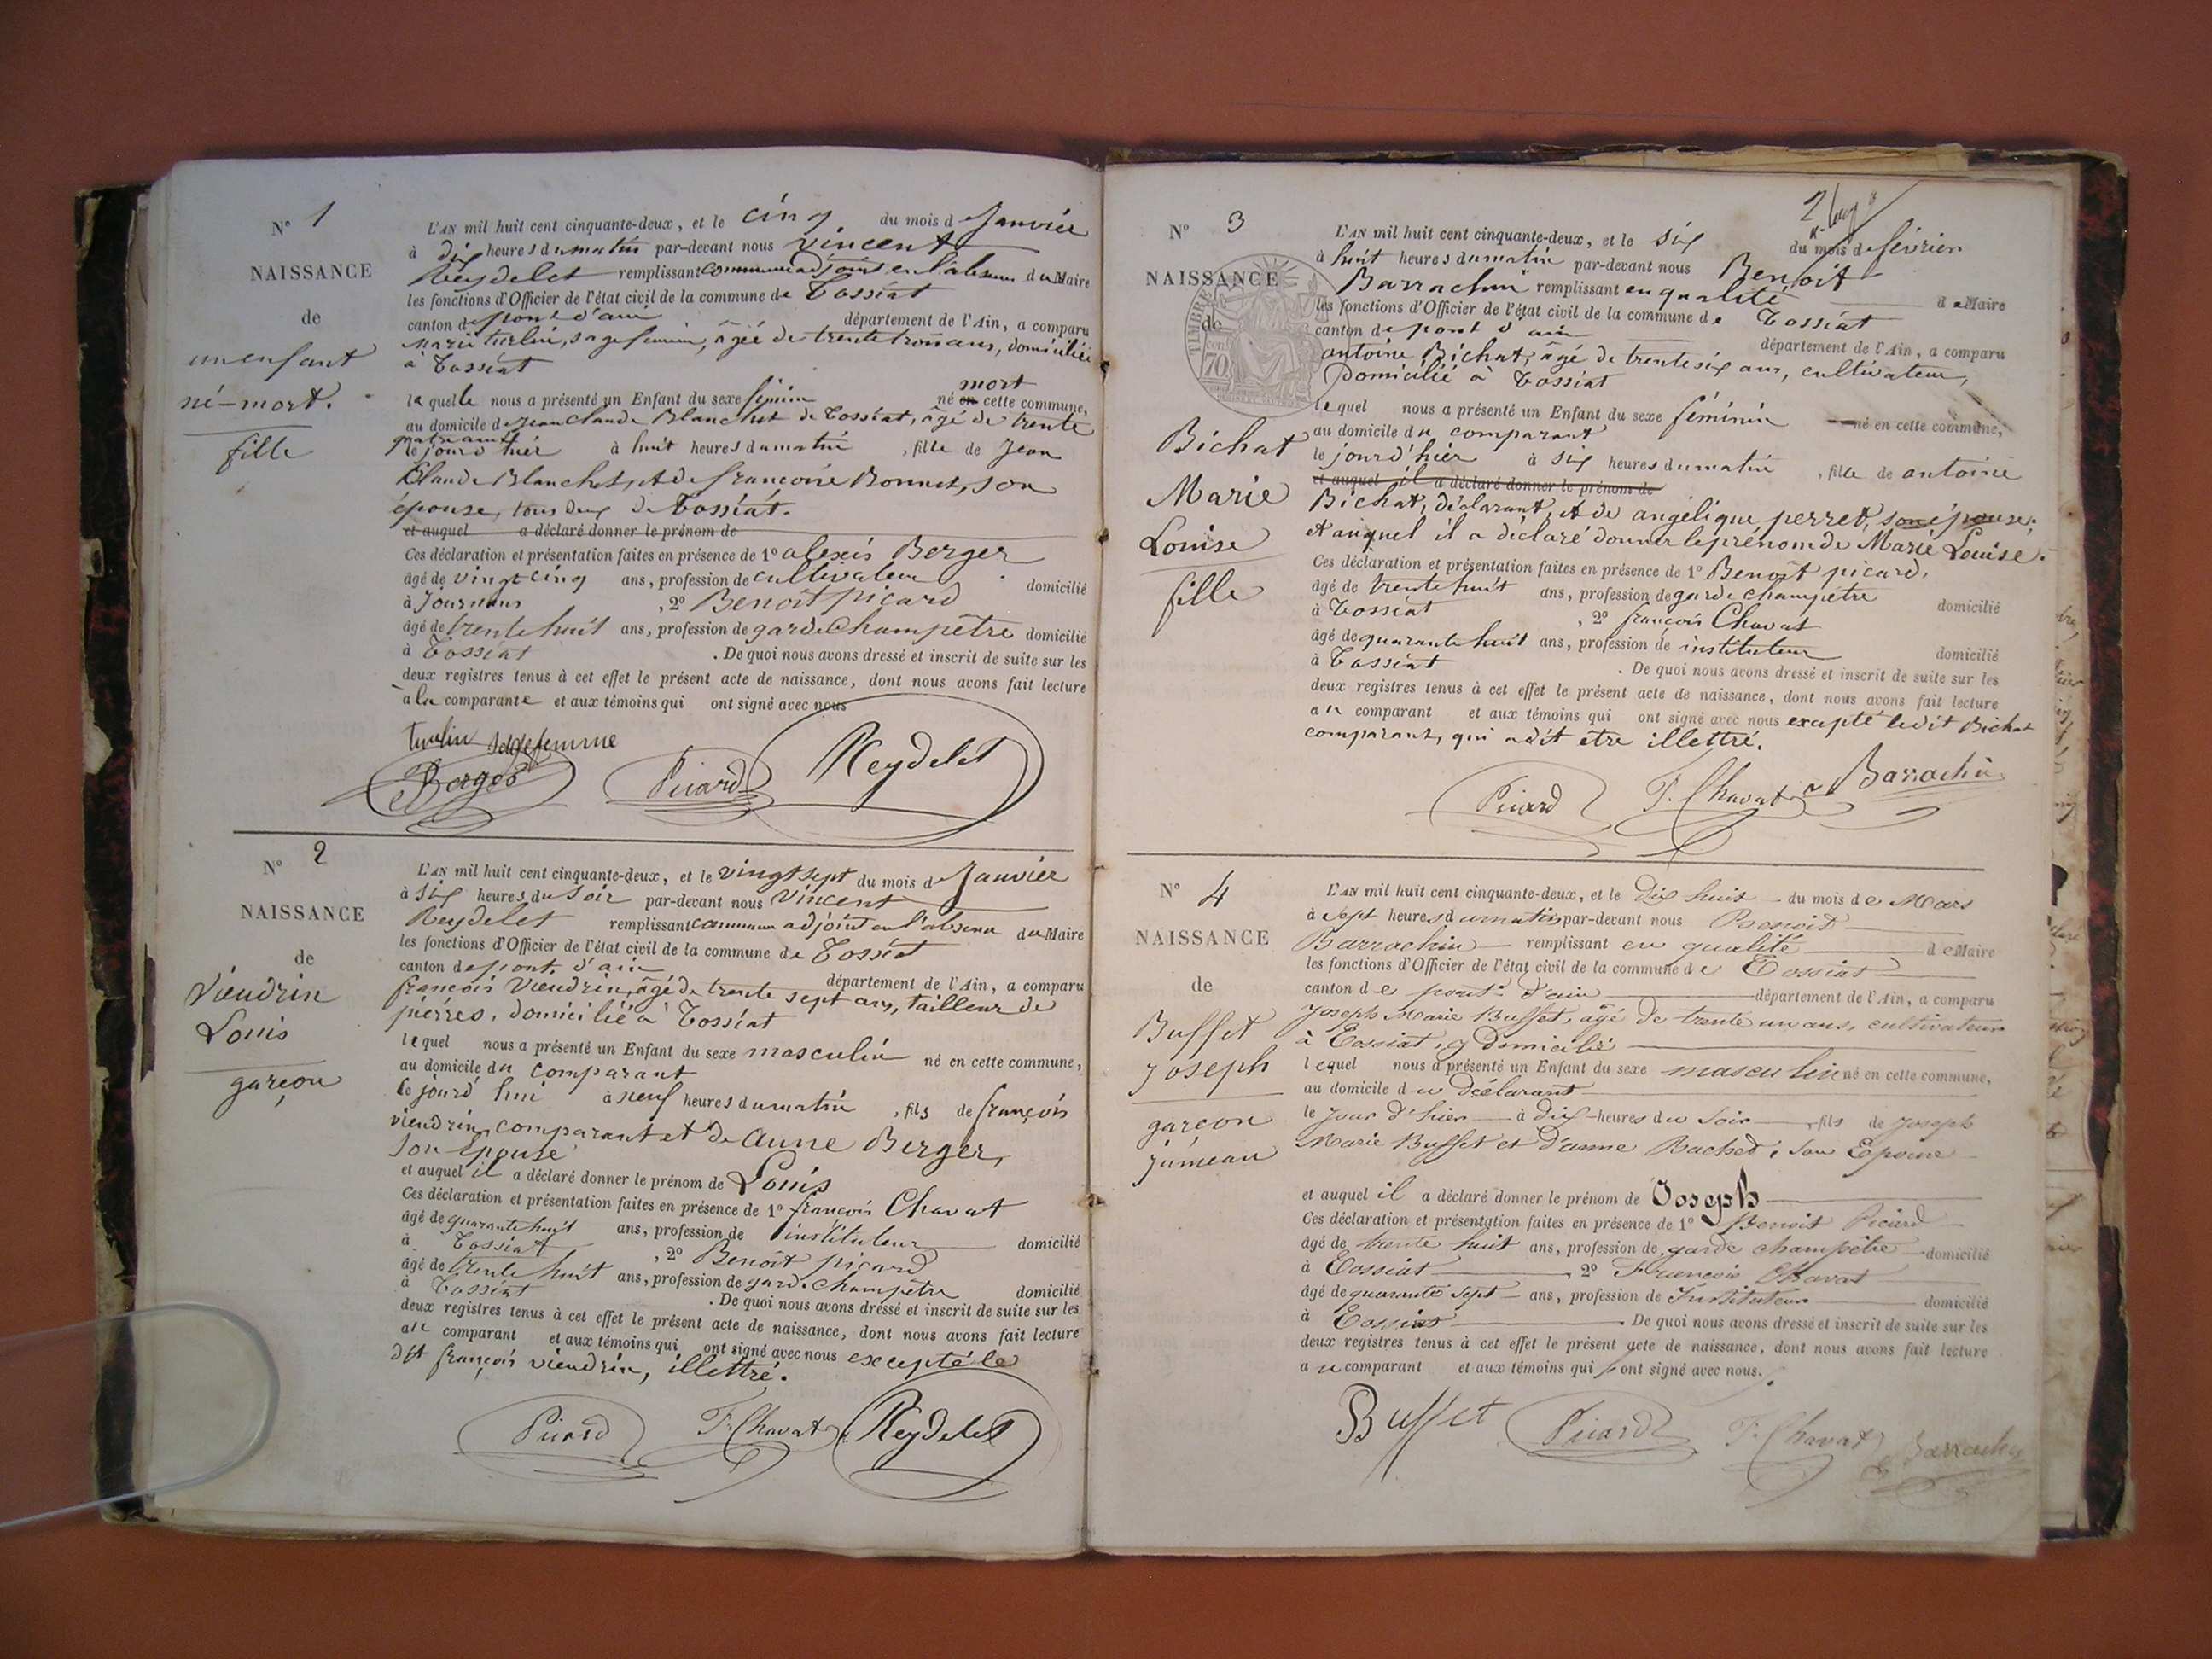 N° 1
NAISSANCE
de
un enfant
né-mort.
fille
L'AN mil huit cent cinquante-deux, et le cinq du mois d Janvier
à dix heures du matin par-devant nous Vincent
Reydelet remplissant comme adjoint en l'absence du Maire
les fonctions d'Officier de l'état civil de la commune de Tossiat
canton de pont d'ain département de l'Ain, a comparu
Marie turlin, sage femme, âgée de trente trois ans, domiciliée
à Tossiat
laquelle nous a présenté un Enfant du sexe féminin né mort en cette commune,
au domicile de Jean Claude Blanchet de Tossiat, âgé de trente
quatre ans
le jour d'hier à huit heures du matin, fille de Jean
Claude Blanchet, et de françoise Bonnet, son
épouse, tous deux de Tossiat.
et auquel a déclaré donner le prénom de
Ces déclaration et présentation faites en présence de 1° alexis Berger
âgé de vingt cinq ans, profession de cultivateur domicilié
à Journans, 2° Benoît picard
âgé de trente huit ans, profession de garde Champêtre domicilié
à Tossiat. De quoi nous avons dressé et inscrit de suite sur les
deux registres tenus à cet effet le présent acte de naissance, dont nous avons fait lecture
à la comparante et aux témoins qui ont signé avec nous
turlin sagefemme
Berger Picard Reydelet
N° 2
NAISSANCE
de
Vieudrin
Louis
garçon
L'AN mil huit cent cinquante-deux, et le vingt sept du mois d Janvier
à six heures du soir par-devant nous Vincent
Reydelet remplissant comme adjoint en l'absence du Maire
les fonctions d'Officier de l'état civil de la commune de Tossiat
canton de pont d'ain département de l'Ain, a comparu
françois Vieudrin, âgé de trente sept ans, tailleur de
pierres, domicilié à Tossiat
lequel nous a présenté un Enfant du sexe masculin né en cette commune,
au domicile du comparant
le jourd'hui à neuf heures du matin, fils de françois
vieudrin, comparant et de anne Berger,
son épouse
et auquel il a déclaré donner le prénom de Louis
Ces déclaration et présentation faites en présence de 1° françois Chavat
âgé de quarante huit ans, profession de instituteur domicilié
à Tossiat, 2° Benoît picard
âgé de trente huit ans, profession de garde champêtre domicilié
à Tossiat. De quoi nous avons dressé et inscrit de suite sur les
deux registres tenus à cet effet le présent acte de naissance, dont nous avons fait lecture
au comparant et aux témoins qui ont signé avec nous excepté le
dit françois vieudrin, illettré.
Picard F. Chavat Reydelet
N° 3
NAISSANCE
de
TIMBRE
70
Bichat
Marie
Louise
fille
L'AN mil huit cent cinquante-deux, et le six du mois de février
à huit heures du matin par-devant nous Benoit
Barrachin remplissant en qualité de Maire
les fonctions d'Officier de l'état civil de la commune de Tossiat
canton de pont d'ain département de l'Ain, a comparu
antoine Bichat, âgé de trente six ans, cultivateur,
Domicilié à Tossiat
lequel nous a présenté un Enfant du sexe féminin né en cette commune,
au domicile du comparant
le jour d'hier à six heures du matin, fille de antoine
et auquel il a déclaré donner le prénom de
Bichat, déclarant, et de angélique perret, son épouse;
et auquel il a déclaré donner le prénom de Marie Louise.
Ces déclaration et présentation faites en présence de 1° Benoît picard,
âgé de trente huit ans, profession de garde champêtre domicilié
à Tossiat, 2° françois Chavat
âgé de quarante huit ans, profession de instituteur domicilié
à Tossiat. De quoi nous avons dressé et inscrit de suite sur les
deux registres tenus à cet effet le présent acte de naissance, dont nous avons fait lecture
au comparant et aux témoins qui ont signé avec nous excepté ledit Bichat
comparant, qui a dit être illettré.
Picard F. Chavat Barrachin
N° 4
NAISSANCE
de
Buffet
Joseph
garçon
jumeau
L'AN mil huit cent cinquante-deux, et le Dix huit du mois de Mars
à sept heures du matin par-devant nous Benoit
Barrachin remplissant en qualité de Maire
les fonctions d'Officier de l'état civil de la commune de Tossiat
canton de pont d'ain département de l'Ain, a comparu
Joseph Marie Buffet, âgé de trente un ans, cultivateur
à Tossiat, y domicilié
lequel nous a présenté un Enfant du sexe masculin né en cette commune,
au domicile du déclarant
le jour d'hier à dix heures du soir, fils de Joseph
Marie Buffet et d'anne Bachod, son Epouse
et auquel il a déclaré donner le prénom de Joseph
Ces déclaration et présentation faites en présence de 1° Benoit Picard
âgé de trente huit ans, profession de garde champêtre domicilié
à Tossiat, 2° François Chavat
âgé de quarante sept ans, profession de Instituteur domicilié
à Tossiat. De quoi nous avons dressé et inscrit de suite sur les
deux registres tenus à cet effet le présent acte de naissance, dont nous avons fait lecture
au comparant et aux témoins qui ont signé avec nous.
Buffet Picard F. Chavat Barrachin